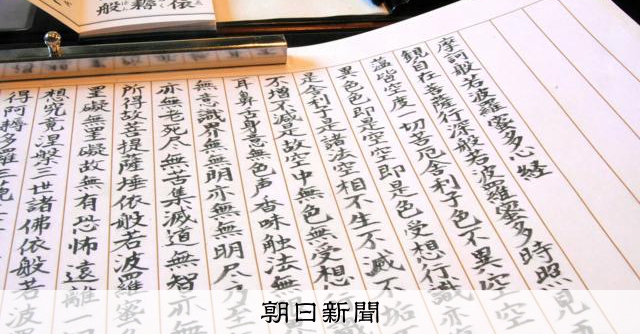 摩訶般若波羅蜜多心経
観自在菩薩行深般若波羅蜜多時照見
蘊皆空度一切苦厄舎利子色不異空空
異色色即是空空即是色受想行識亦
是舎利子是諸法空相不生不滅不垢
不増不減是故空中無色無受想
耳鼻舌身意無色声香味触法無
無意識界無無明亦無無明尽乃至
亦無老死尽無苦集滅道無智亦
所得故菩提薩埵依般若波羅
罣礙無罣礙故無有恐怖遠離一
想究竟涅槃三世諸佛依般若波
得阿耨多羅三藐
朝日新聞